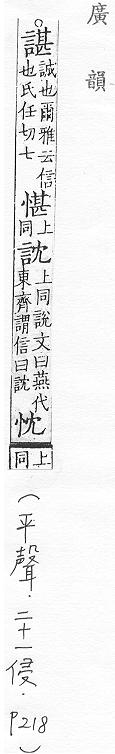 廣韻
○諶誠也爾雅云信也氏任切七愖上同訦上同說文曰燕代東齊謂信曰訦忱上同
(平聲.二十一侵.P218)